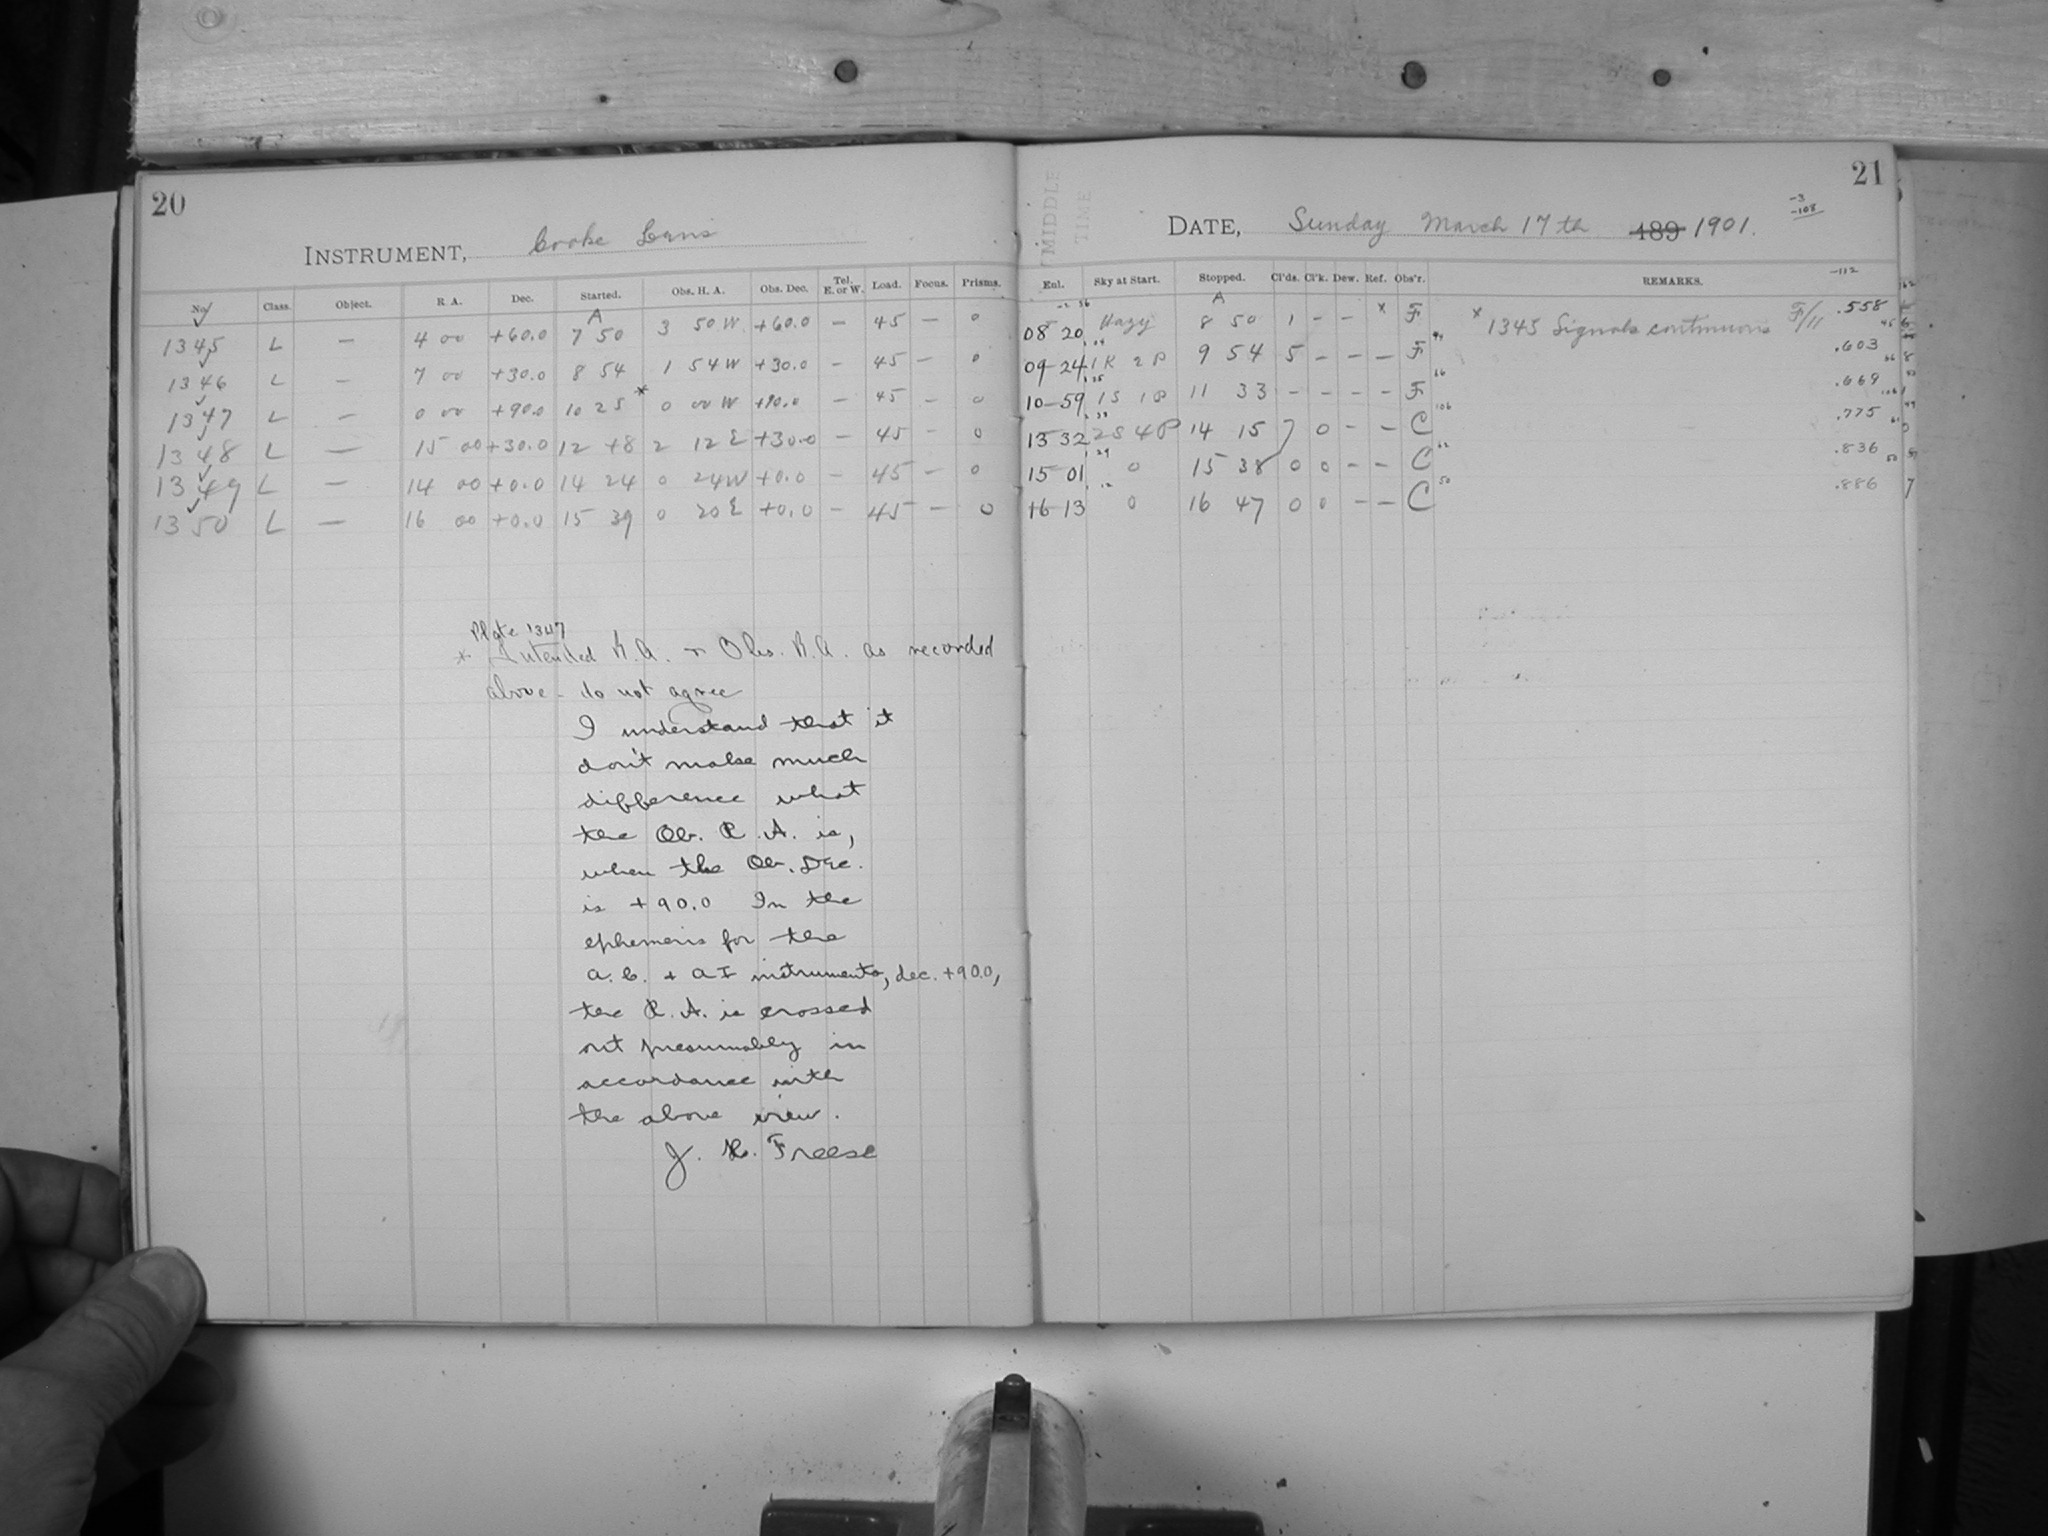 20
INSTRUMENT, Cooke Lens
No. Class. Object. R. A. Dec. Started. Obs. H. A. Obs. Dec. Tel. E. or W. Load. Focus. Prisms.
A
1345 L — 4 00 +60.0 7 50 3 50 W +60.0 — 45 — 0
1346 L — 7 00 +30.0 8 54 1 54 W +30.0 — 45 — 0
1347 L — 0 00 +90.0 10 25 * 0 00 W +90.0 — 45 — 0
1348 L — 15 00 +30.0 12 48 2 12 E +30.0 — 45 — 0
1349 L — 14 00 +0.0 14 24 0 24 W +0.0 — 45 — 0
1350 L — 16 00 +0.0 15 39 0 20 E +0.0 — 45 — 0
Plate 1347
* Intended R.A. + Obs. R.A. as recorded
above - do not agree
I understand that it
don't make much
difference what
the Ob. R. A. is,
when the Ob. Dec.
is +90.0 In the
ephemeris for the
A.C. + A I instruments, dec. +90.0,
the R. A. is crossed
out presumably in
accordance with
the above view.
J. H. Freese
21
MIDDLE
TIME
-3
-108
DATE, Sunday March 17th 189 1901.
-112
Enl. Sky at Start. Stopped. Cl'ds. Cl'k. Dew. Ref. Obs'r. REMARKS.
A
08 20 Hazy 8 50 1 — — x F x 1345 Signals continuous F/11 .558
09 24 1R 2P 9 54 5 — — — F .603
10 59 1S 1P 11 33 — — — — F .669
13 32 2S 4P 14 15 7 0 — — C .775
15 01 0 15 38 0 0 — — C .836
16 13 0 16 47 0 0 — — C .886